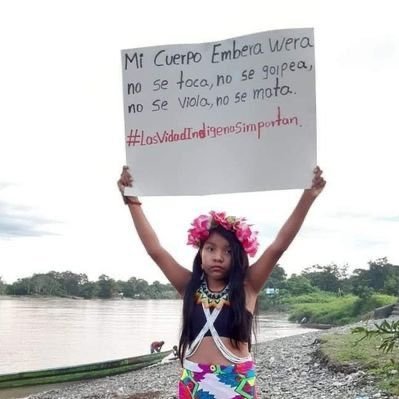 Mi Cuerpo Embera Wera
no se toca, no se golpea,
no se viola, no se mata.
#LasVidadIndigenasimportan.